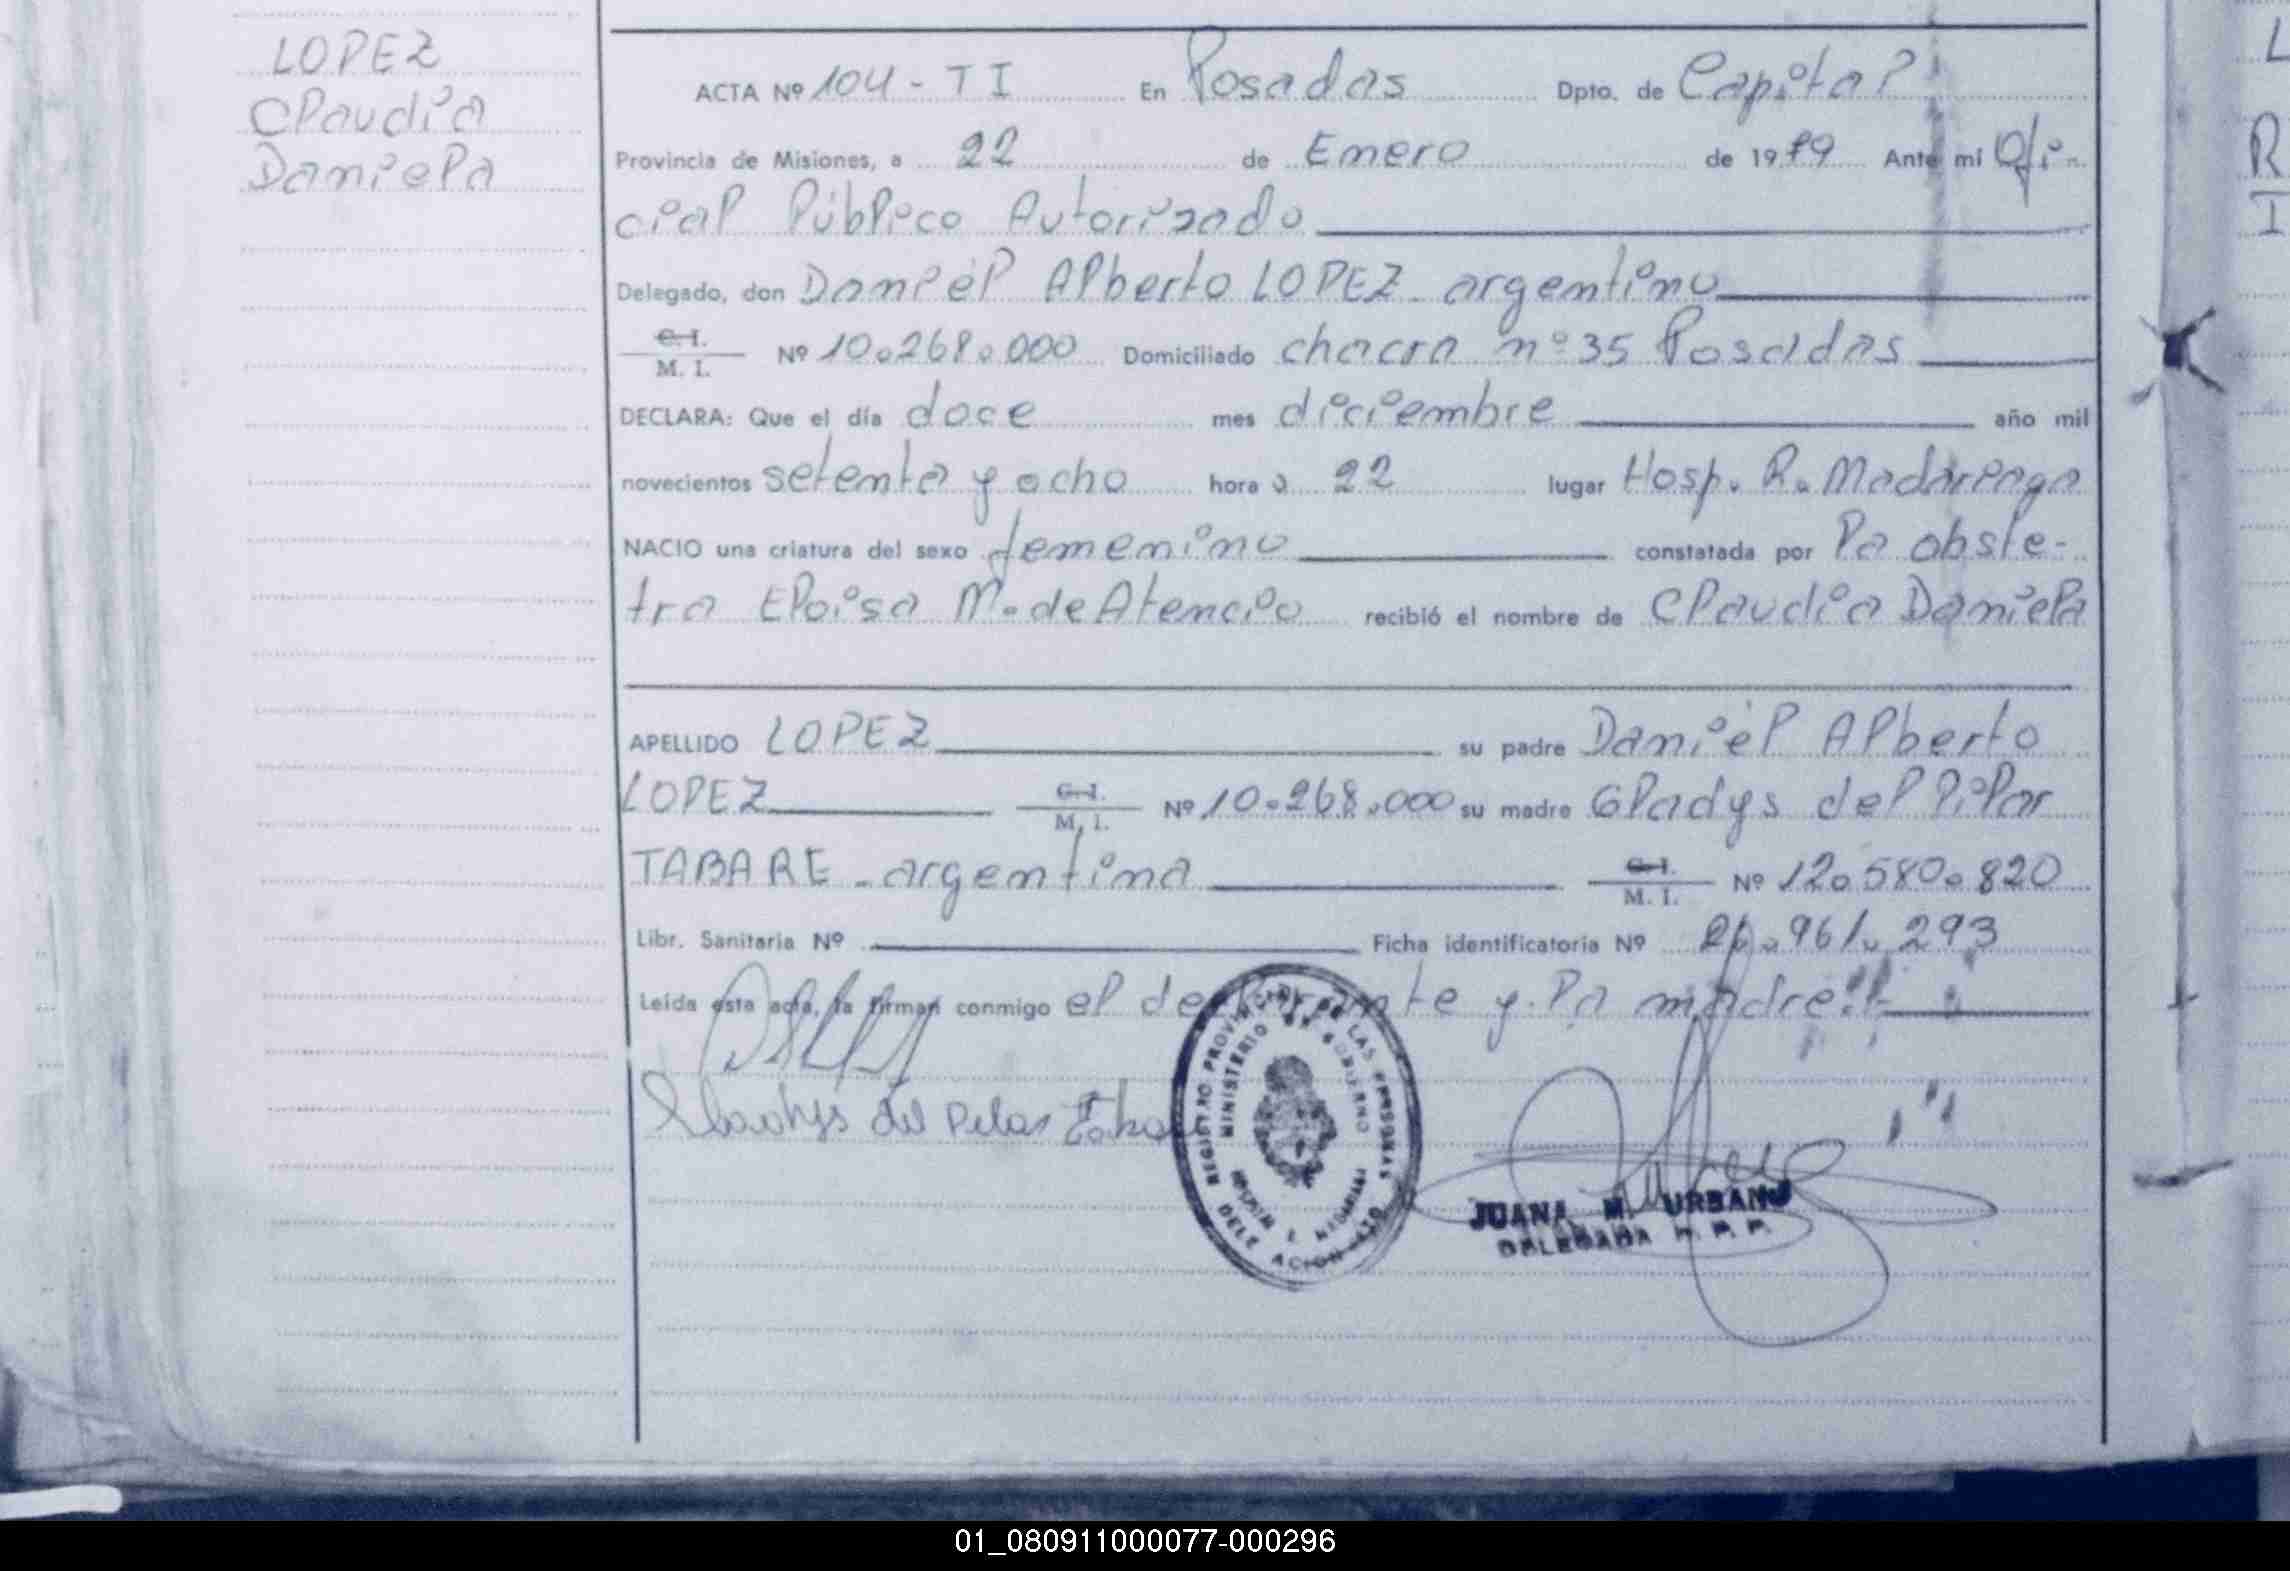 LOPEZ
Claudia
Daniela
ACTA Nº 104 - TI En Posadas Dpto. de Capital
Provincia de Misiones, a 22 de Enero de 1979 Ante mi Ofi-
cial Público Autorizado
Delegado, don Daniel Alberto LOPEZ argentino
C. I.
M. I. Nº 10.268.000 Domiciliado chacra nº 35 Posadas
DECLARA: Que el día doce mes diciembre año mil
novecientos setenta y ocho hora 22 lugar Hosp. R. Madariaga
NACIO una criatura del sexo femenino constatada por la obste-
tra Eloisa M. de Atencio recibió el nombre de Claudia Daniela
APELLIDO LOPEZ su padre Daniel Alberto
LOPEZ C. I.
M. I. Nº 10.268.000 su madre Gladys del Pilar
TABARE - argentina C. I.
M. I. Nº 12.580.820
Libr. Sanitaria Nº Ficha identificatoria Nº 26.961.293
Leída esta acta, la firman conmigo el declarante y la madre
Gladys del Pilar
REGISTRO PROVINCIAL DE LAS PERSONAS
MINISTERIO DE GOBIERNO
JUANA M. URBANO
DELEGADA R. P. P.
L
R
I
01_080911000077-000296